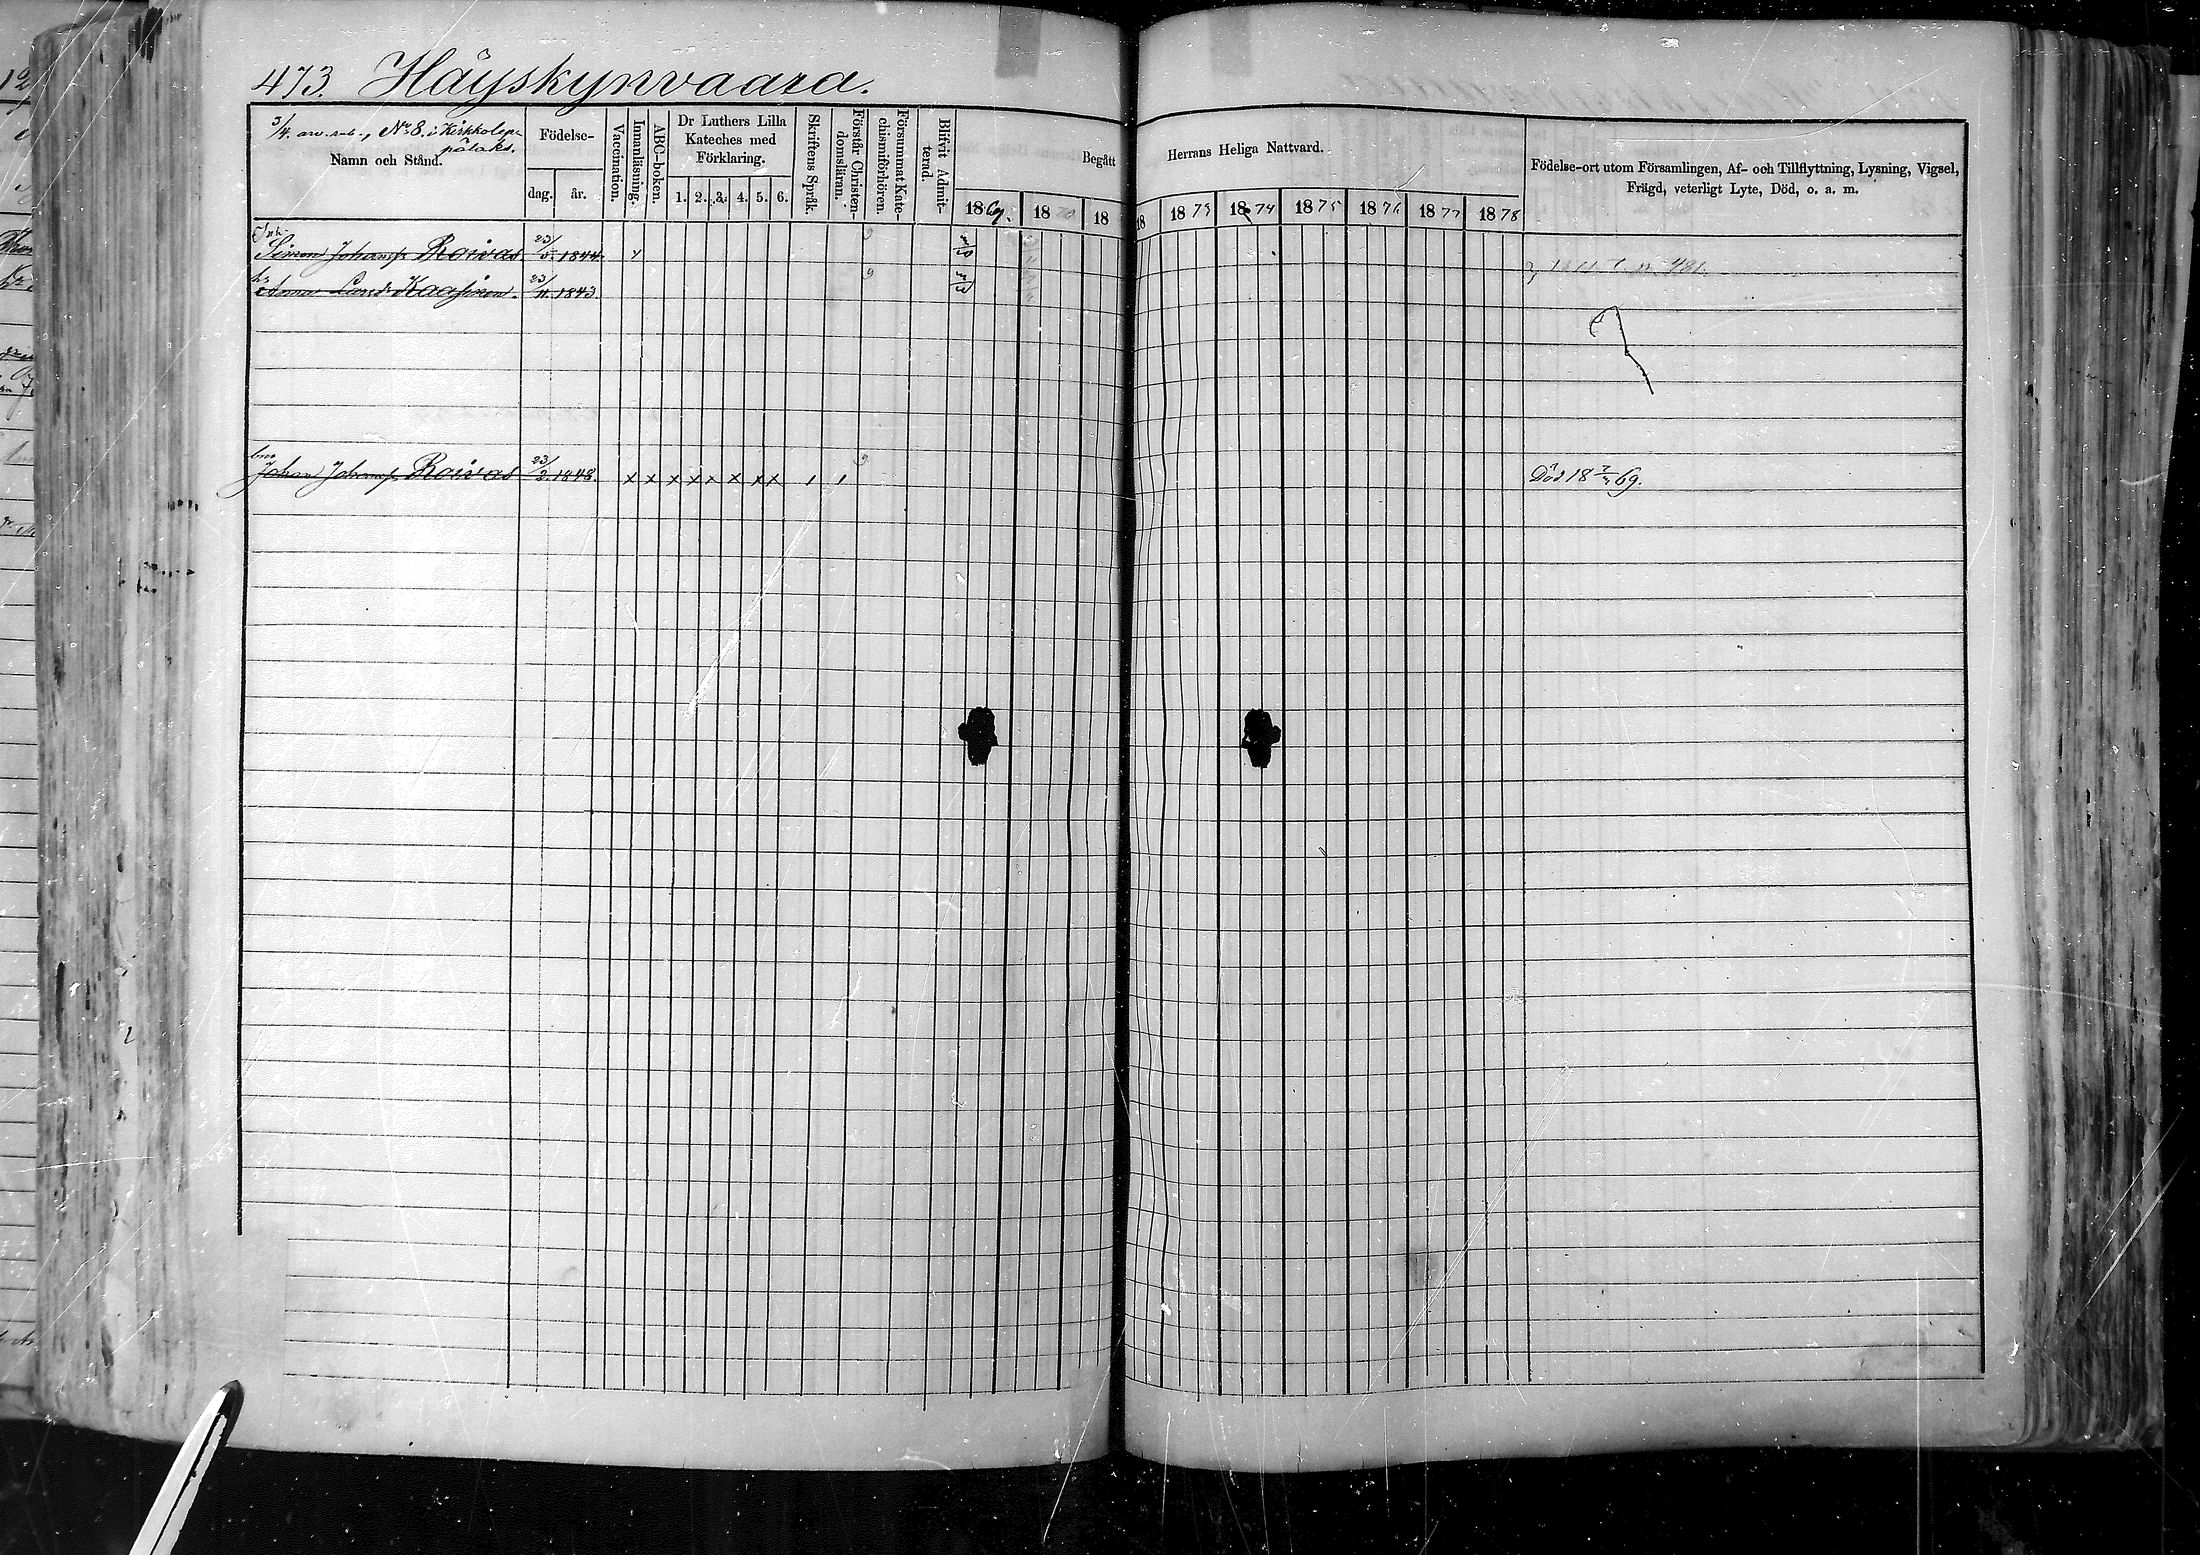 473. Häyskynvaara.
3/4. arv. rub., No 8. i Kirkkolep-
pälaks.
Namn och Stånd.
Födelse-
dag. år.
Vaccination.
Innanläsning.
ABC-boken.
Dr Luthers Lilla
Kateches med
Förklaring.
1. 2. 3. 4. 5. 6.
Skriftens Språk.
Förstår Christen-
domsläran.
Försummat Kate-
chismiförhören.
Blifvit Admit-
terad.
Begått Herrans Heliga Nattvard.
1869. 1870 18 18 1873 1874 1875 1876 1877 1878
Födelse-ort utom Församlingen, Af- och Tillflyttning, Lysning, Vigsel,
Frägd, veterligt Lyte, Död, o. a. m.
Simon Johansp. Roivas 23/5. 1844.
h. Anna Carol. Kaasinen. 23/11. 1843.
481.
bror
Johan Johansp. Roivas 23/2. 1848. x x x x x x x x
Död 18 69.